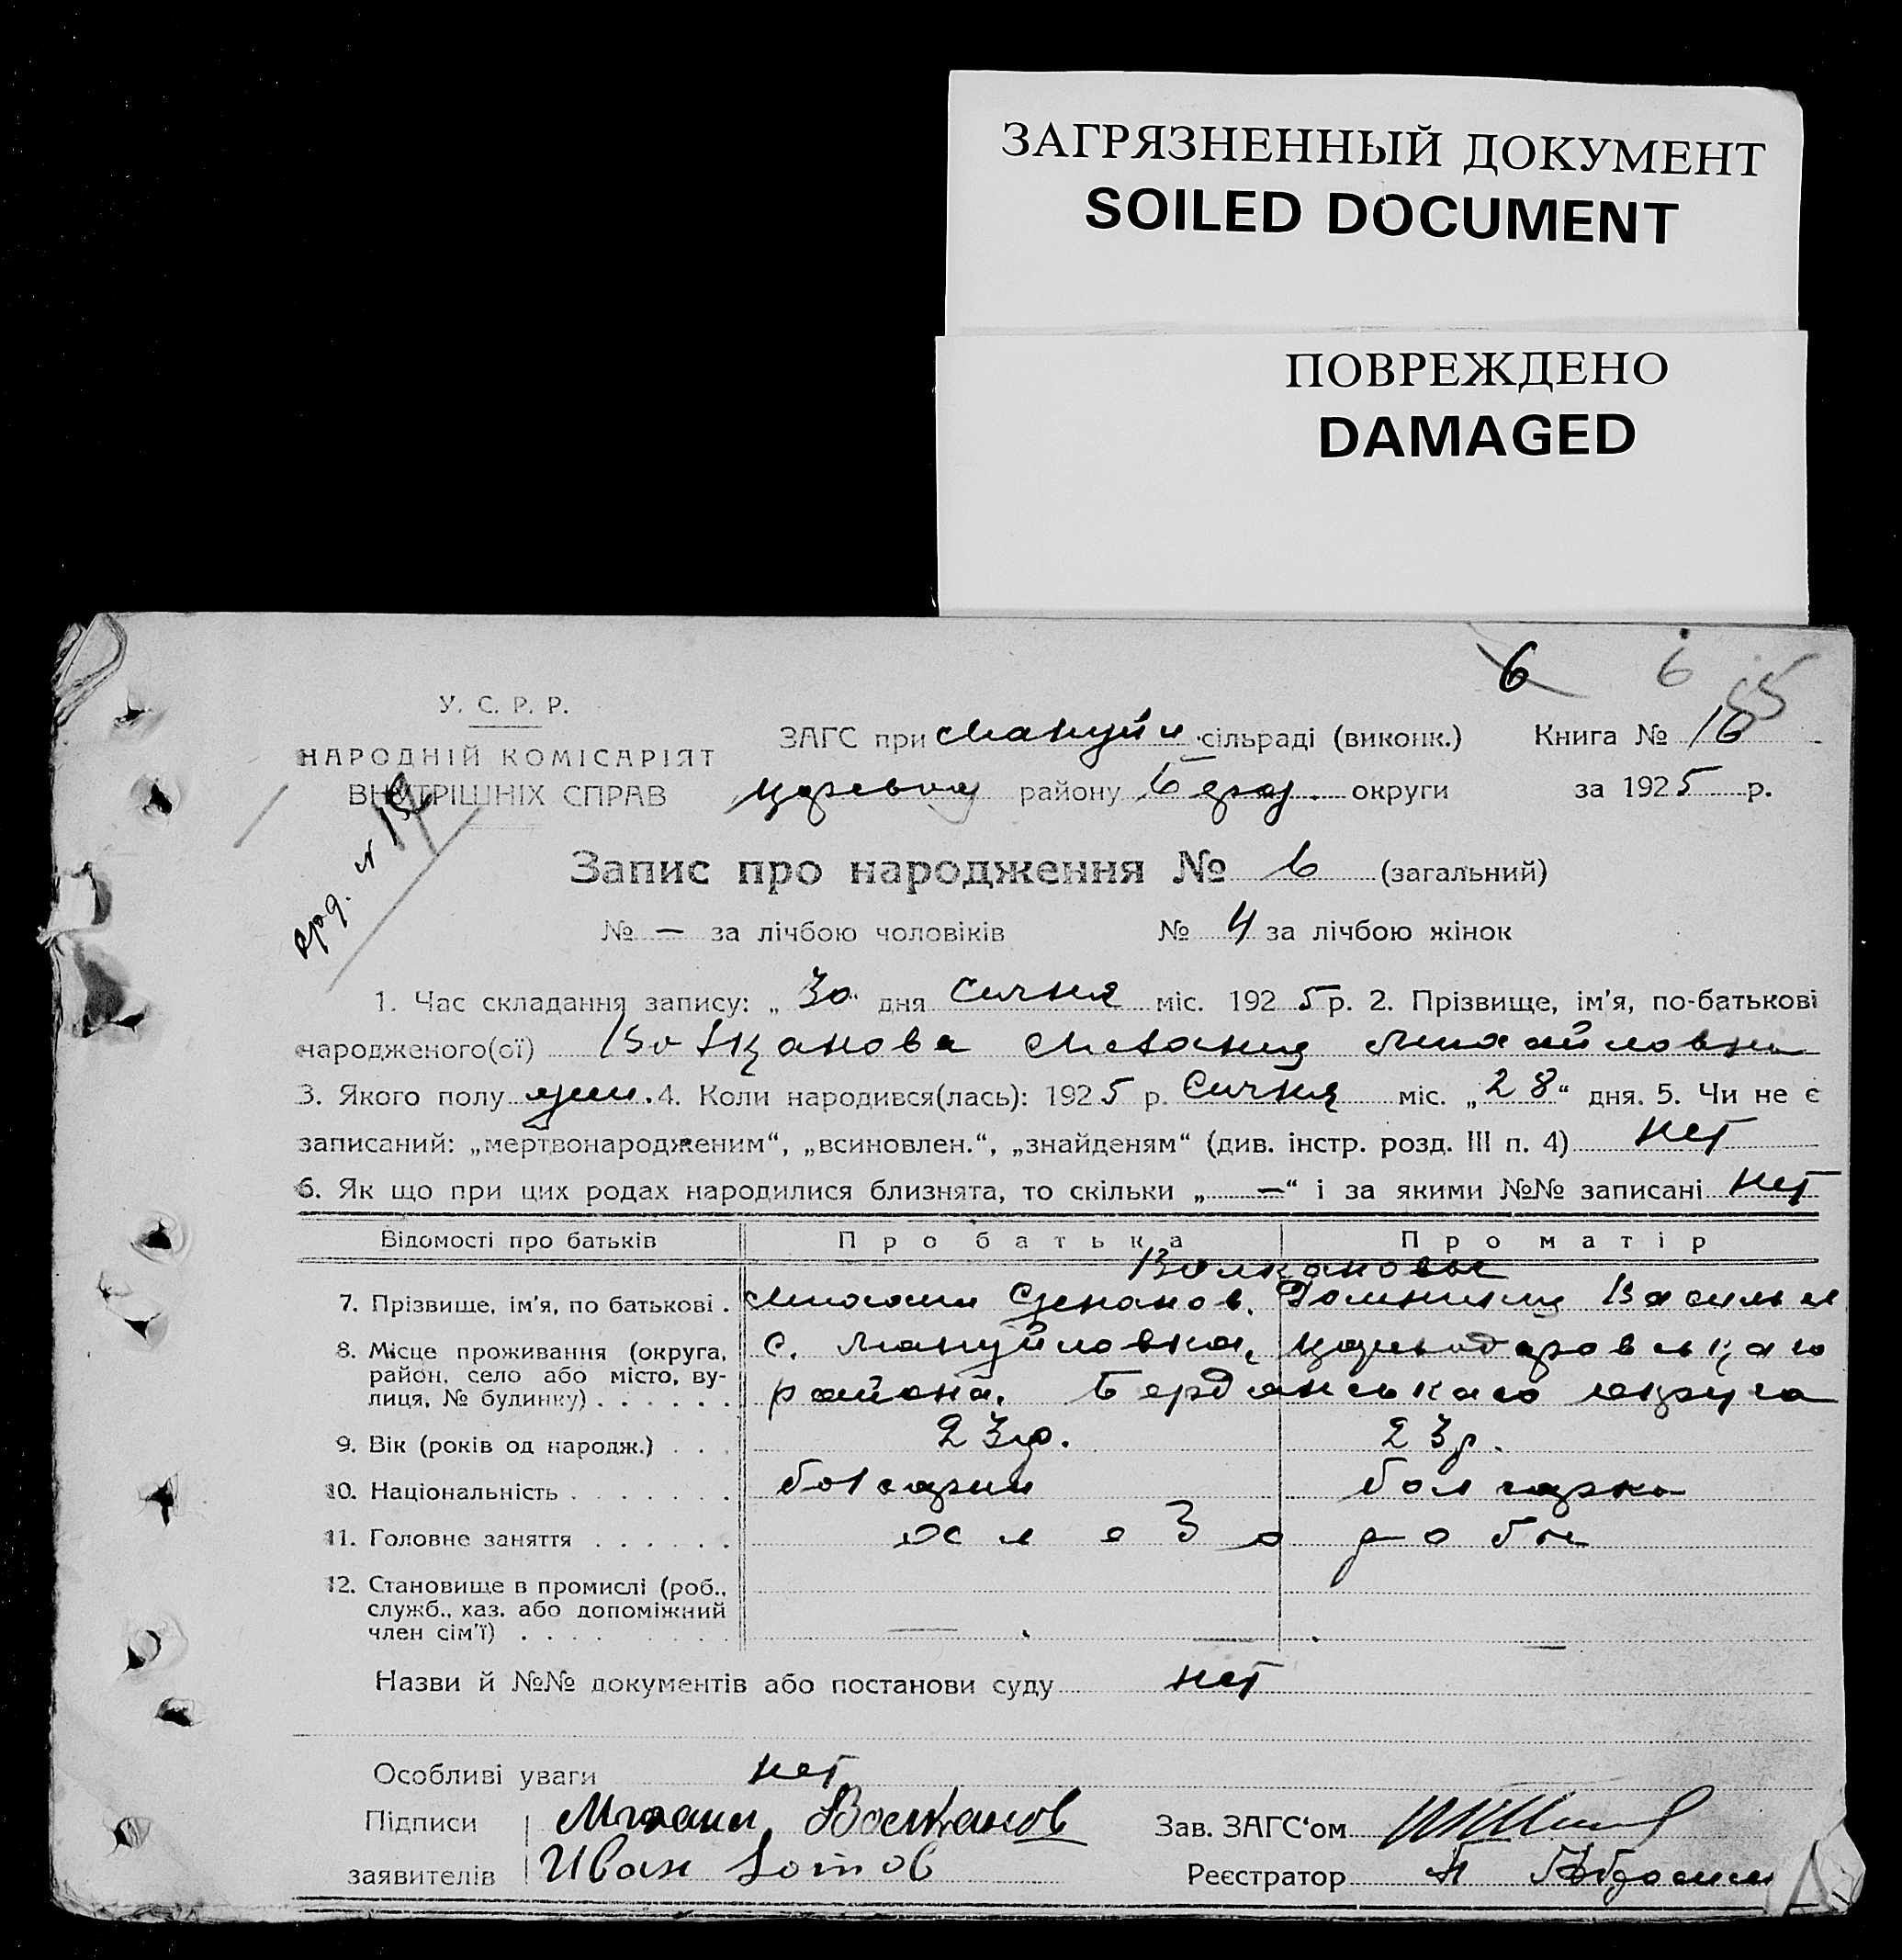 ЗАГРЯЗНЕННЫЙ ДОКУМЕНТ
SOILED DOCUMENT
ПОВРЕЖДЕНО
DAMAGED
6 6 55
У. С. Р. Р.
НАРОДНІЙ КОМІСАРІЯТ
ВНУТРІШНІХ СПРАВ
ЗАГС при Мануйл. сільраді (виконк.) Книга № 16
району округи за 1925 р.
Запис про народження № 6 (загальний)
№ — за лічбою чоловіків № 4 за лічбою жінок
1. Час складання запису: „30" дня Сичня міс. 1925 р. 2. Прізвище, ім'я, по-батькові
народженого(ої) Волканова Мелания Михайловна
3. Якого полу жин. 4. Коли народився(лась): 1925 р. Сичня міс. „28" дня. 5. Чи не є
записаний: „мертвонародженим", „всиновлен.", „знайденям" (див. інстр. розд. III п. 4) нет
6. Як що при цих родах народилися близнята, то скільки „—" і за якими №№ записані нет
Відомості про батьків Про батька Про матір
Волкановы
7. Прізвище, ім'я, по батькові . Михаил Степанов. Домникия Васильев
8. Місце проживання (округа, район, село або місто, вулиця, № будинку) . . . . . . с. Мануйловка,
района. Бердянського округа
9. Вік (років од народж.) . . . 23 р. 23 р.
10. Національність . . . . . . . болгарин болгарка
11. Головне заняття . . . . . . хлеборобы
12. Становище в промислі (роб., служб., хаз. або допоміжний член сім'ї) . . . . — —
Назви й №№ документів або постанови суду нет
Особливі уваги нет
Підписи Михаил Волканов Зав. ЗАГС'ом
заявителів Иван Реєстратор